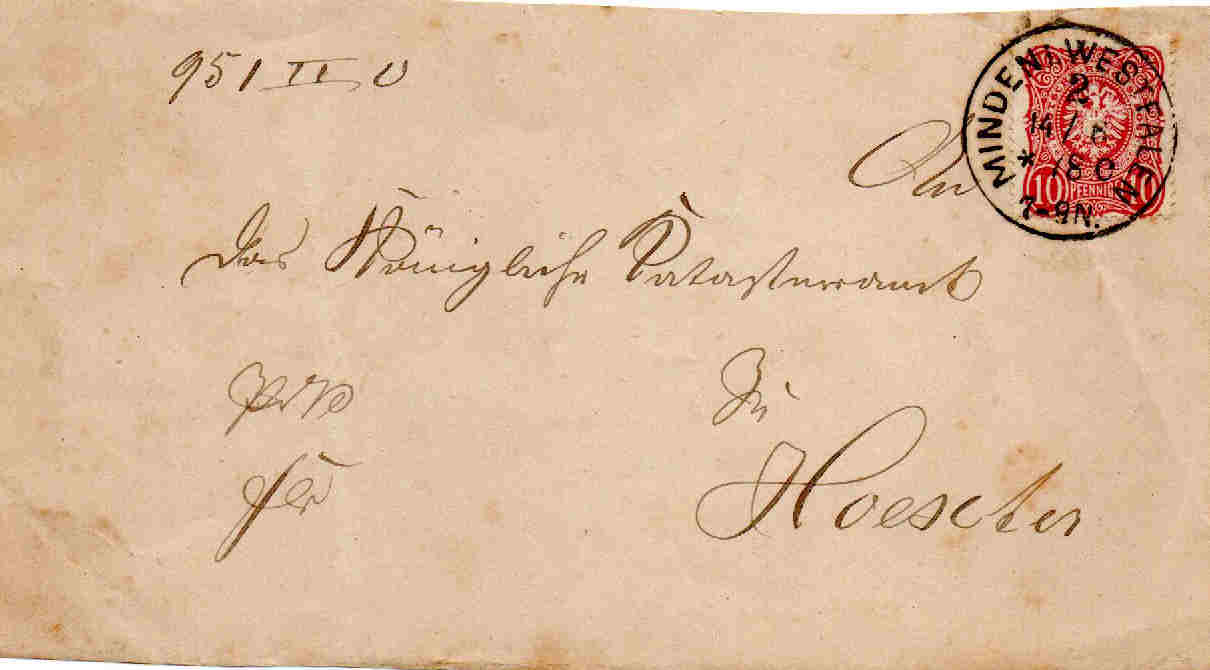 951 II U
MINDEN I. WESTFALEN
2
14/
* 180
7-9N.
10 PFENNIG 10
An
das Königliche Katasteramt
zu
Hoexter